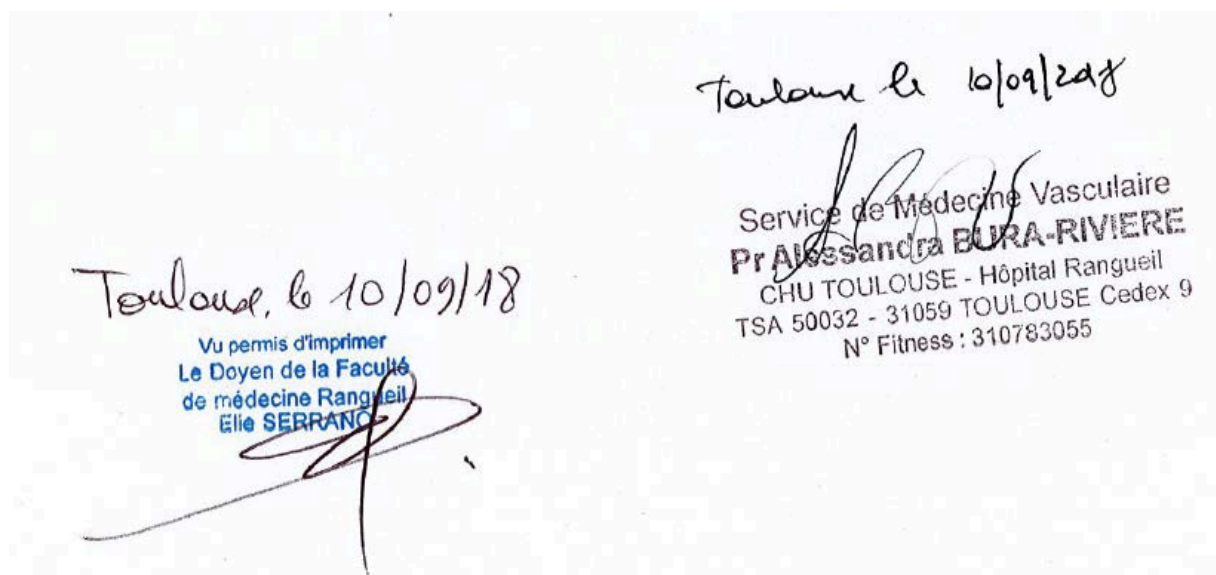 Toulouse le 10/09/2018
Service de Médecine Vasculaire
Pr Alessandra BURA-RIVIERE
CHU TOULOUSE - Hôpital Rangueil
TSA 50032 - 31059 TOULOUSE Cedex 9
N° Fitness : 310783055
Toulouse, le 10/09/18
Vu permis d'imprimer
Le Doyen de la Faculté
de médecine Rangueil
Elie SERRANO